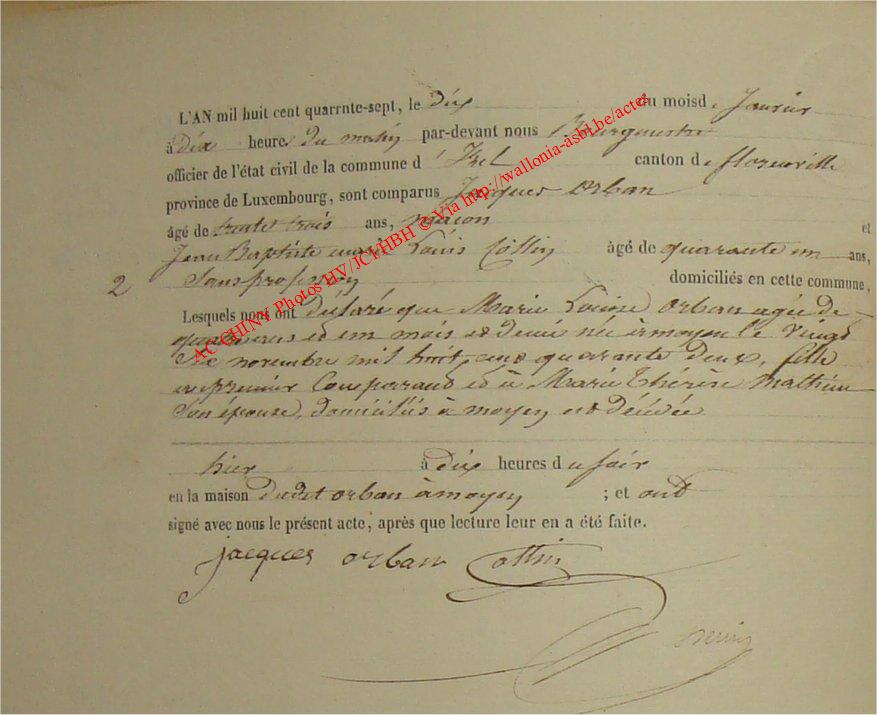 L'AN mil huit cent quarrnte-sept, le dix du mois d. Janvier
à dix heure du matin par-devant nous Bourgmestre
officier de l'état civil de la commune d'Izel canton de florenville
province de Luxembourg, sont comparus Jacques Orban
âgé de trente trois ans, macon et
Jean Baptiste Louis Collin âgé de quarante un ans,
2 Sans profession domiciliés en cette commune,
Lesquels nous ont déclaré que Marie Louise Orban agée de
quatre ans et un mois et demi née à moyen le vingt
six novembre mil huit cent quarante deux, fille
premier Comparrand et à Marie Thérèse Mathieu
Son épouse, domiciliés à moyen est décédée
hier à dix heures du soir
en la maison dudit orban à moyen ; et ont
signé avec nous le présent acte, après que lecture leur en a été faite.
jacques orban Collin
ACCHINY Photos HV/JCL/HBH © Via http://wallonia-asbl.be/actes